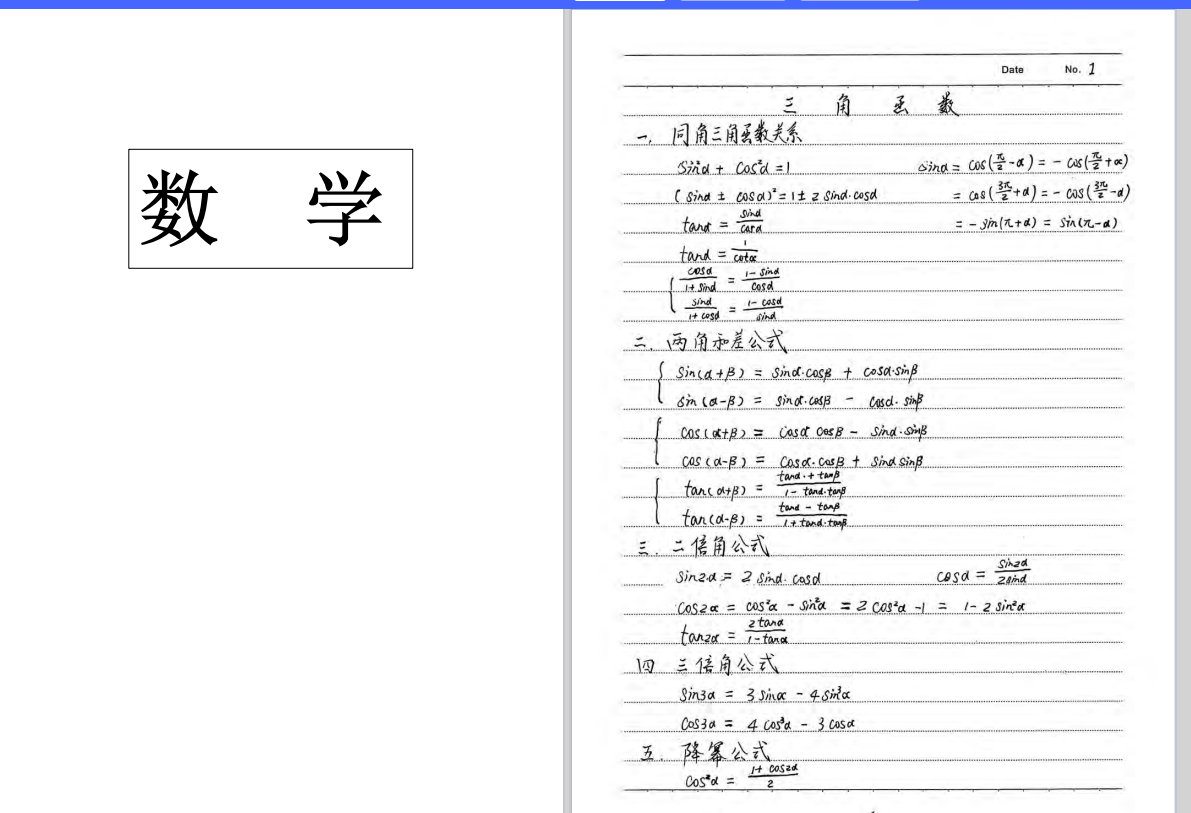 数 学
Date No. 1
三 角 函 数
一. 同角三角函数关系
sin²α + cos²α = 1
sinα = cos(π/2 - α) = - cos(π/2 + α)
(sinα ± cosα)² = 1 ± 2 sinα·cosα
= cos(3π/2 + α) = - cos(3π/2 - α)
tanα = sinα/cosα
= - sin(π+α) = sin(π-α)
tanα = 1/cotα
cosα/(1+sinα) = (1-sinα)/cosα
sinα/(1+cosα) = (1-cosα)/sinα
二. 两角和差公式
sin(α+β) = sinα·cosβ + cosα·sinβ
sin(α-β) = sinα·cosβ - cosα·sinβ
cos(α+β) = cosα cosβ - sinα·sinβ
cos(α-β) = cosα·cosβ + sinα sinβ
tan(α+β) = (tanα + tanβ)/(1 - tanα·tanβ)
tan(α-β) = (tanα - tanβ)/(1 + tanα·tanβ)
三. 二倍角公式
sin2α = 2 sinα·cosα
cosα = sin2α/2sinα
cos2α = cos²α - sin²α = 2cos²α - 1 = 1 - 2sin²α
tan2α = 2tanα/(1-tanα)
四 三倍角公式
sin3α = 3 sinα - 4sin³α
cos3α = 4 cos³α - 3 cosα
五. 降幂公式
cos²α = (1+cos2α)/2